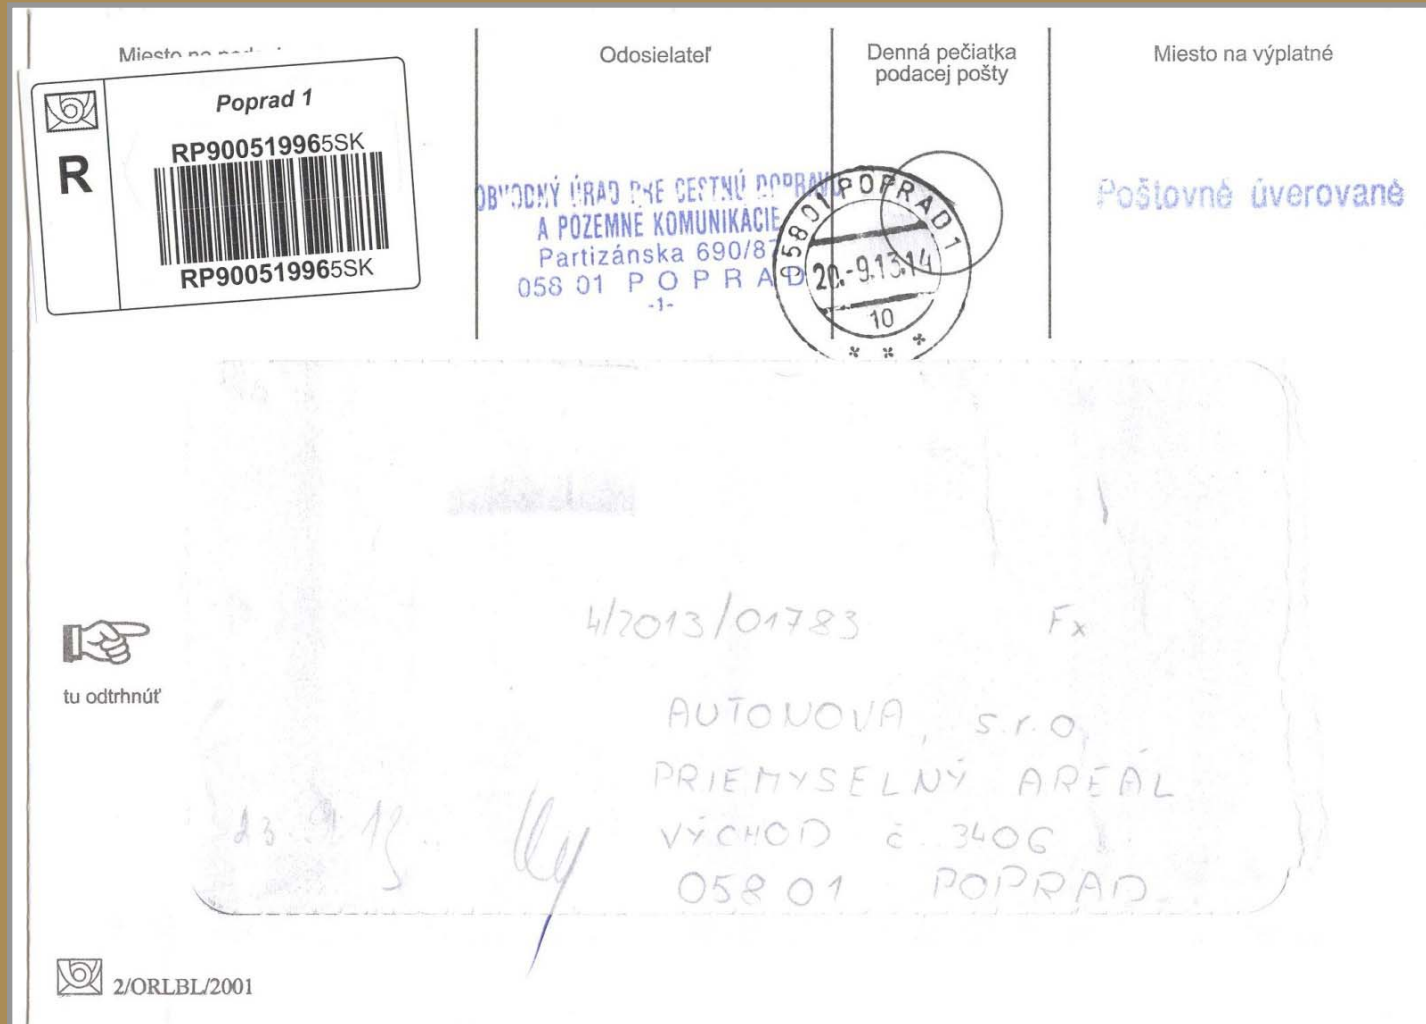 Miesto na
Poprad 1
RP900519965SK
R
RP900519965SK
Odosielateľ
OBVODNÝ ÚRAD PRE CESTNÚ DOPRAVU
A POZEMNÉ KOMUNIKÁCIE
Partizánska 690/87
058 01 POPRAD
-1-
Denná pečiatka
podacej pošty
058 01 POPRAD 1
20.-9.13.14
10
* * *
Miesto na výplatné
Poštovné úverované
4/2013/01783 Fx
tu odtrhnúť
AUTONOVA, s.r.o,
PRIEMYSELNÝ AREÁL
VÝCHOD č. 3406
058 01 POPRAD
23.9.13
2/ORLBL/2001